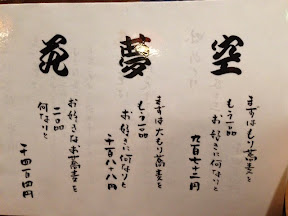 空
まずはもり蕎麦を
もう一品
お好きに何なりと
夢
まずは大もり蕎麦を
もう一品
お好きに何なりと
千百八十八円
花
お好きなお蕎麦を
二品
何なりと